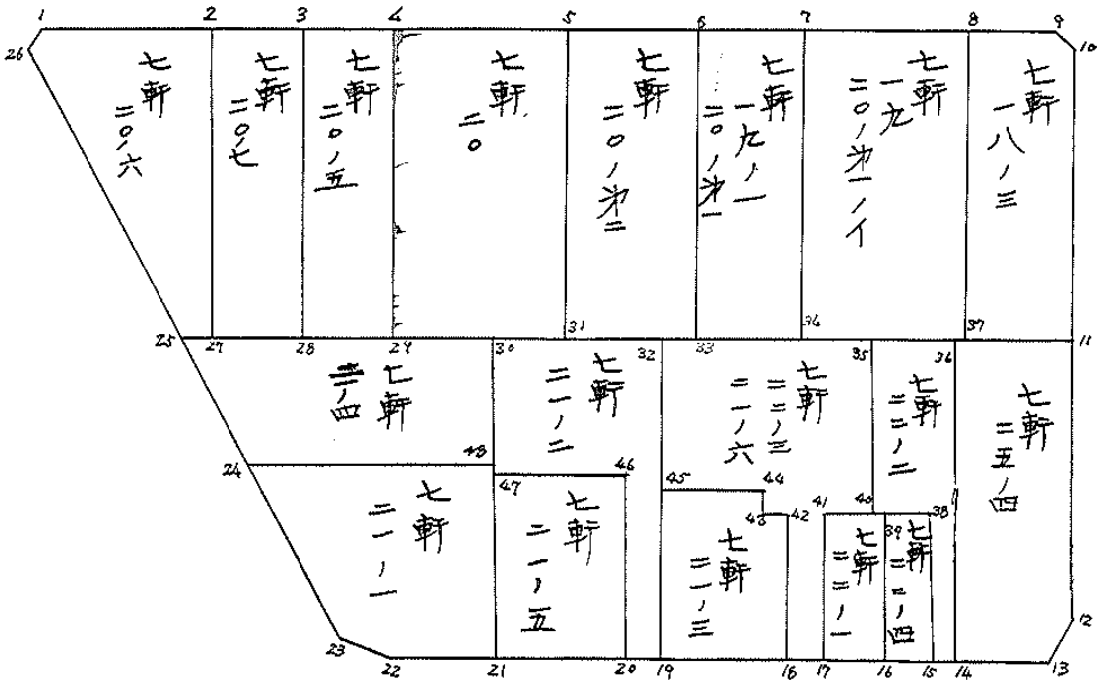 1 2 3 4 5 6 7 8 9
26 10
七軒
二〇ノ六
七軒
二〇ノ七
七軒
二〇ノ五
七軒
二〇
七軒
二〇ノ第二
七軒
一九ノ一
二〇ノ第一
七軒
一九
二〇ノ第一ノイ
七軒
一八ノ三
25 27 28 29 30 31 32 33 34 35 36 37 11
七軒
ノ四
七軒
二一ノ二
七軒
二二ノ三
二一ノ六
七軒
二二ノ二
七軒
二五ノ四
24 48 47 46 45 44 43 42 41 40 39 38
七軒
二一ノ一
七軒
二一ノ五
七軒
二一ノ三
七軒
二二ノ一
七軒
二二ノ四
12
23 22 21 20 19 18 17 16 15 14 13